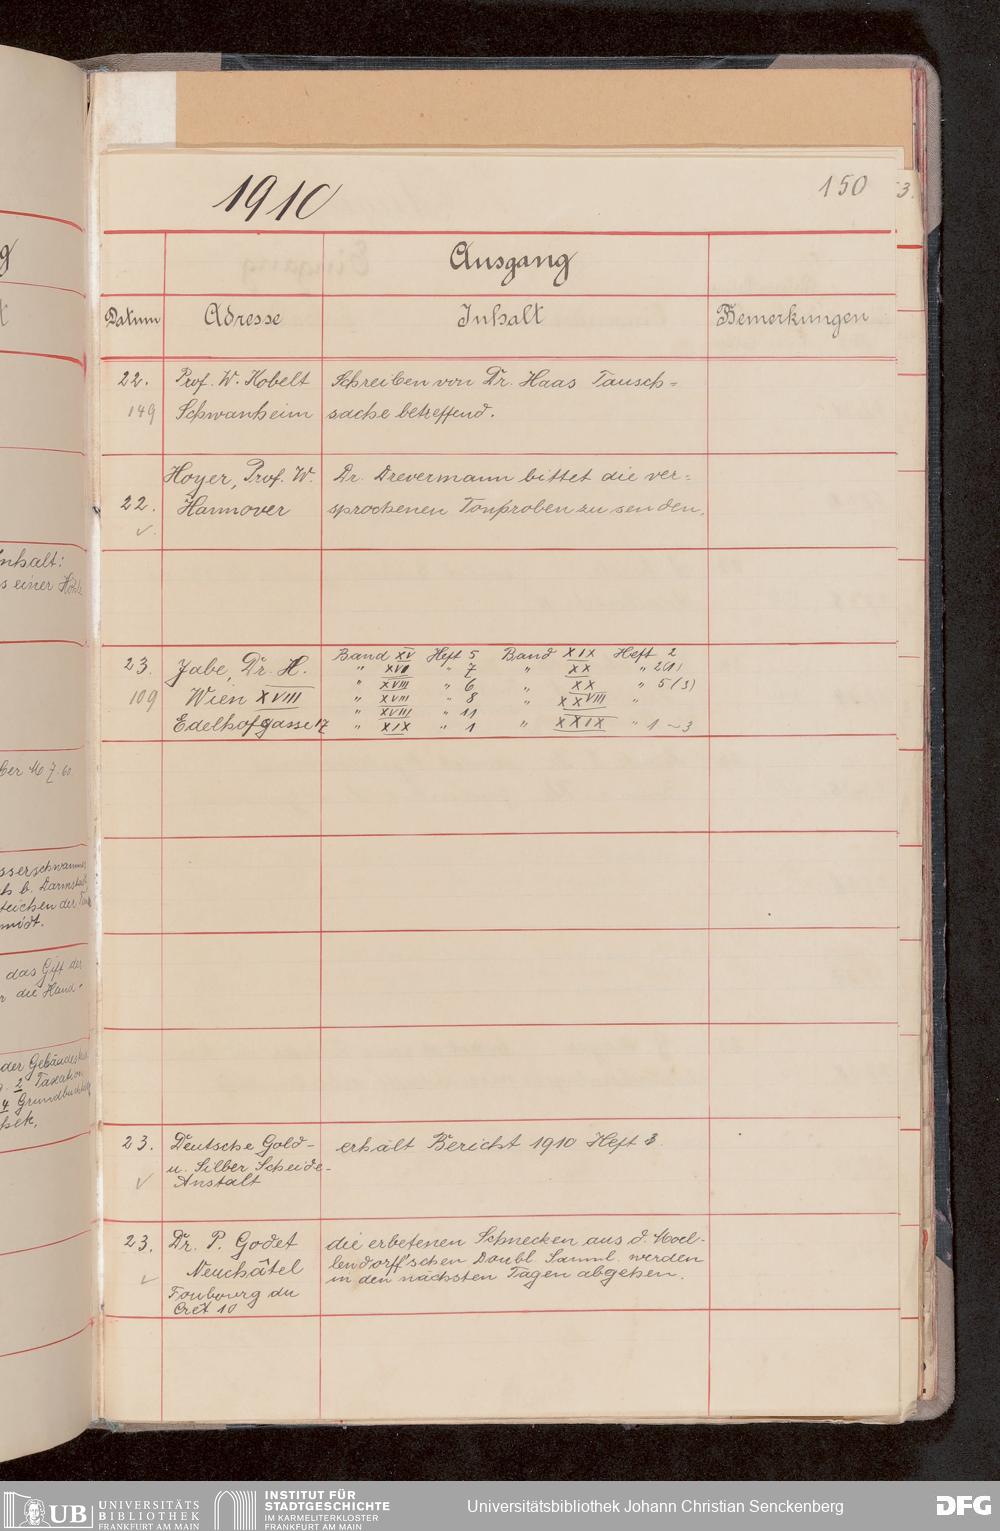 1910
150
3.
Ausgang
Datum Adresse Inhalt Bemerkungen
22. Prof. W. Kobelt Schreiben von Dr. Haas Tausch=
149 Schwanheim sache betreffend.
Hoyer, Prof. W. Dr. Drevermann bittet die ver=
22. Hannover sprochenen Tonproben zu senden.
Band XV Heft 5 Band XIX Heft 2
23. Jabe, Dr. H. " XVII " 7 " XX " 2(1)
" XVIII " 6 " XX " 5(3)
109 Wien XVIII " XVIII " 8 " XXVIII "
" XVIII " 11
Edelhofgasse 17 " XIX " 1 " XXIX " 1-3
23. Deutsche Gold- erhält Bericht 1910 Heft 3.
u. Silber Scheide-
Anstalt
23. Dr. P. Godet die erbetenen Schnecken aus d. Moel-
Neuchâtel lendorff'schen Doubl. Samml. werden
in den nächsten Tagen abgehen.
Foubourg du
Crêt 10
nhalt:
s einer
das Gift der
die Hand-
der
2 Taxation
4
UB UNIVERSITÄTS
BIBLIOTHEK
FRANKFURT AM MAIN
INSTITUT FÜR
STADTGESCHICHTE
IM KARMELITERKLOSTER
FRANKFURT AM MAIN
Universitätsbibliothek Johann Christian Senckenberg
DFG